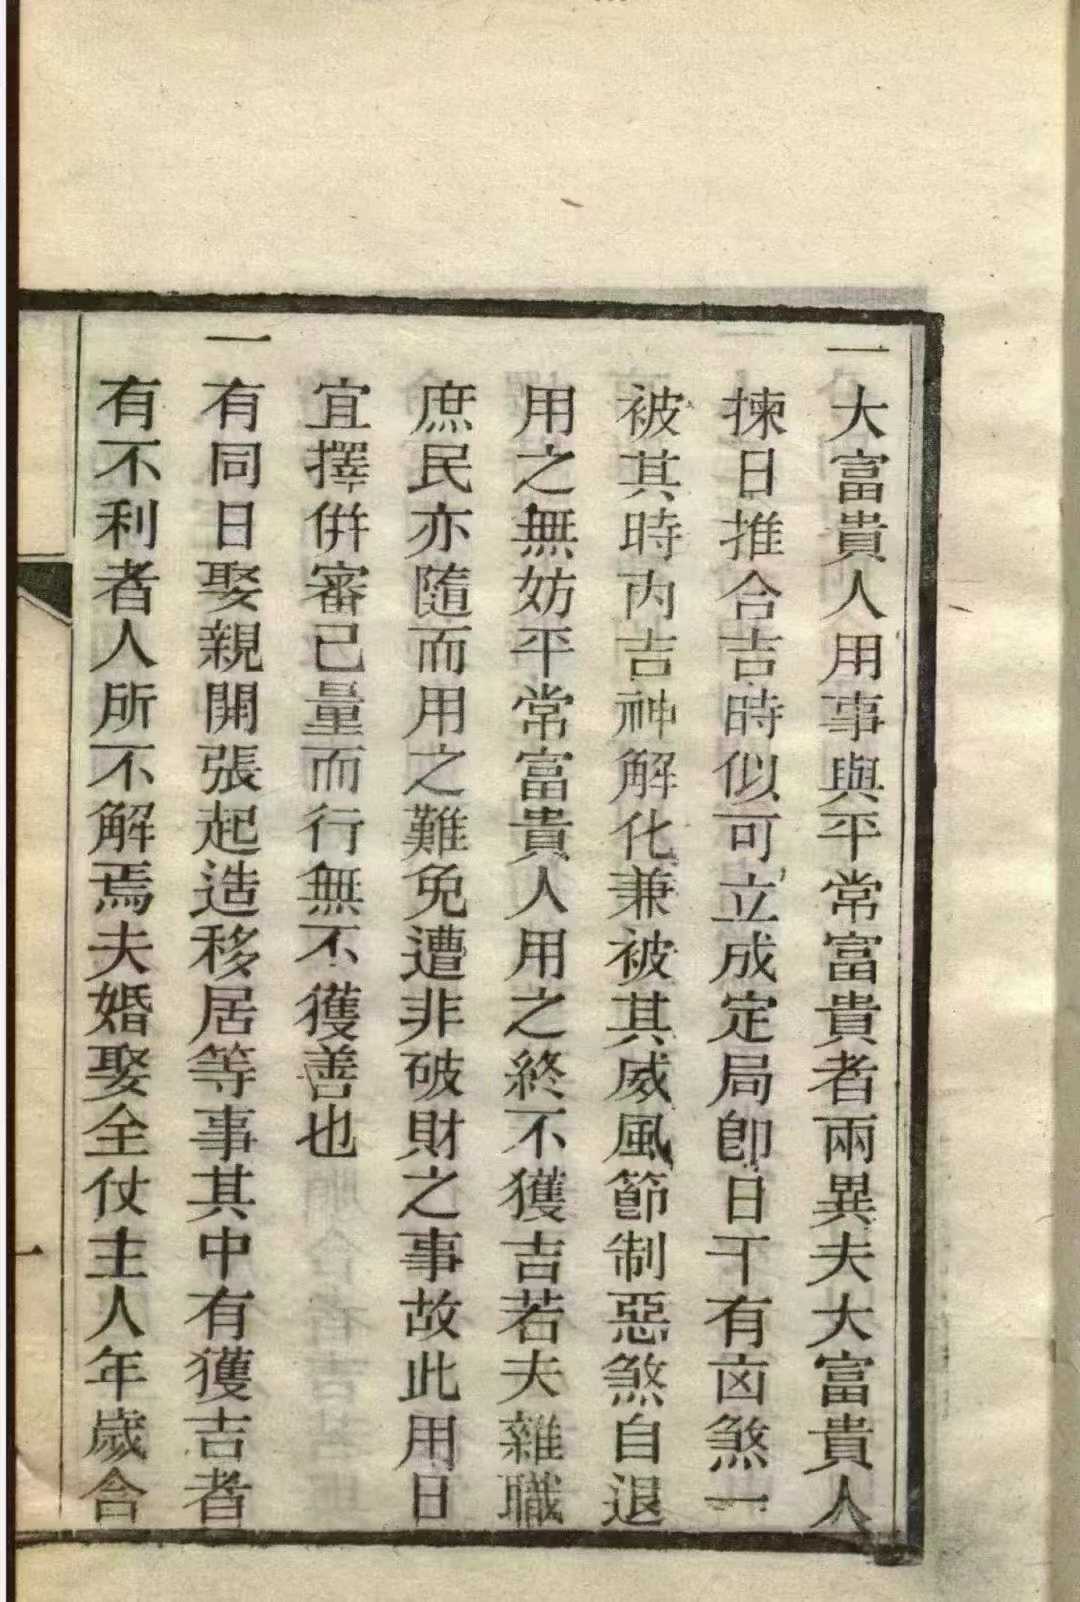 一大富貴人用事與平常富貴者兩異夫大富貴人
揀日推合吉時似可立成定局卽日干有凶煞一
被其時內吉神解化兼被其威風節制惡煞自退
用之無妨平常富貴人用之終不獲吉若夫雜職
庶民亦隨而用之難免遭非破財之事故此用日
宜擇併審己量而行無不獲善也
一有同日娶親開張起造移居等事其中有獲吉者
有不利者人所不解焉夫婚娶全仗主人年歲合
一